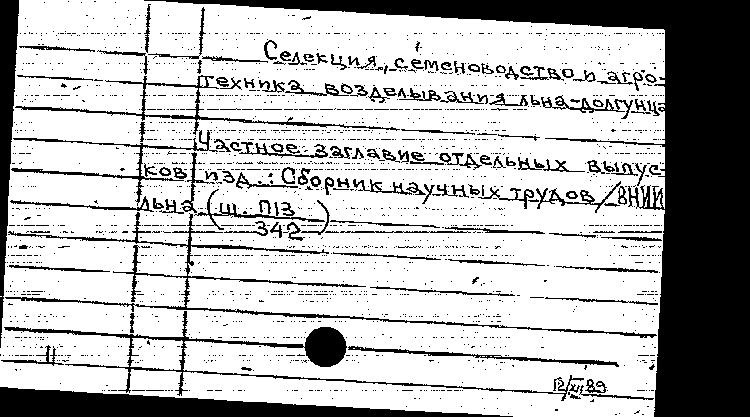 Селекция, семеноводство и агро-
техника возделывания льна-долгунца
Частное заглавие отдельных выпус-
ков изд.: Сборник научных трудов / ВНИИ
льна. (Ш. П13
342)
11
12/XI 89